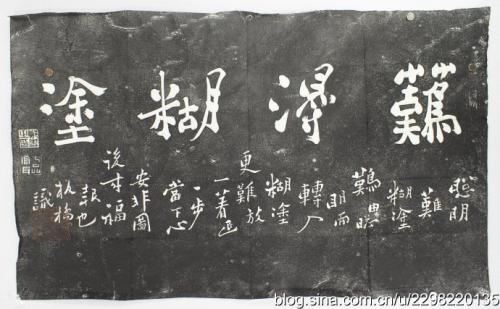 難得糊塗
聰明
難
糊塗
難由聰
明而
轉入
糊塗
更難放
一着退
一步
當下心
安非圖
後来福
報也
板橋
識
blog.sina.com.cn/u/2298220135